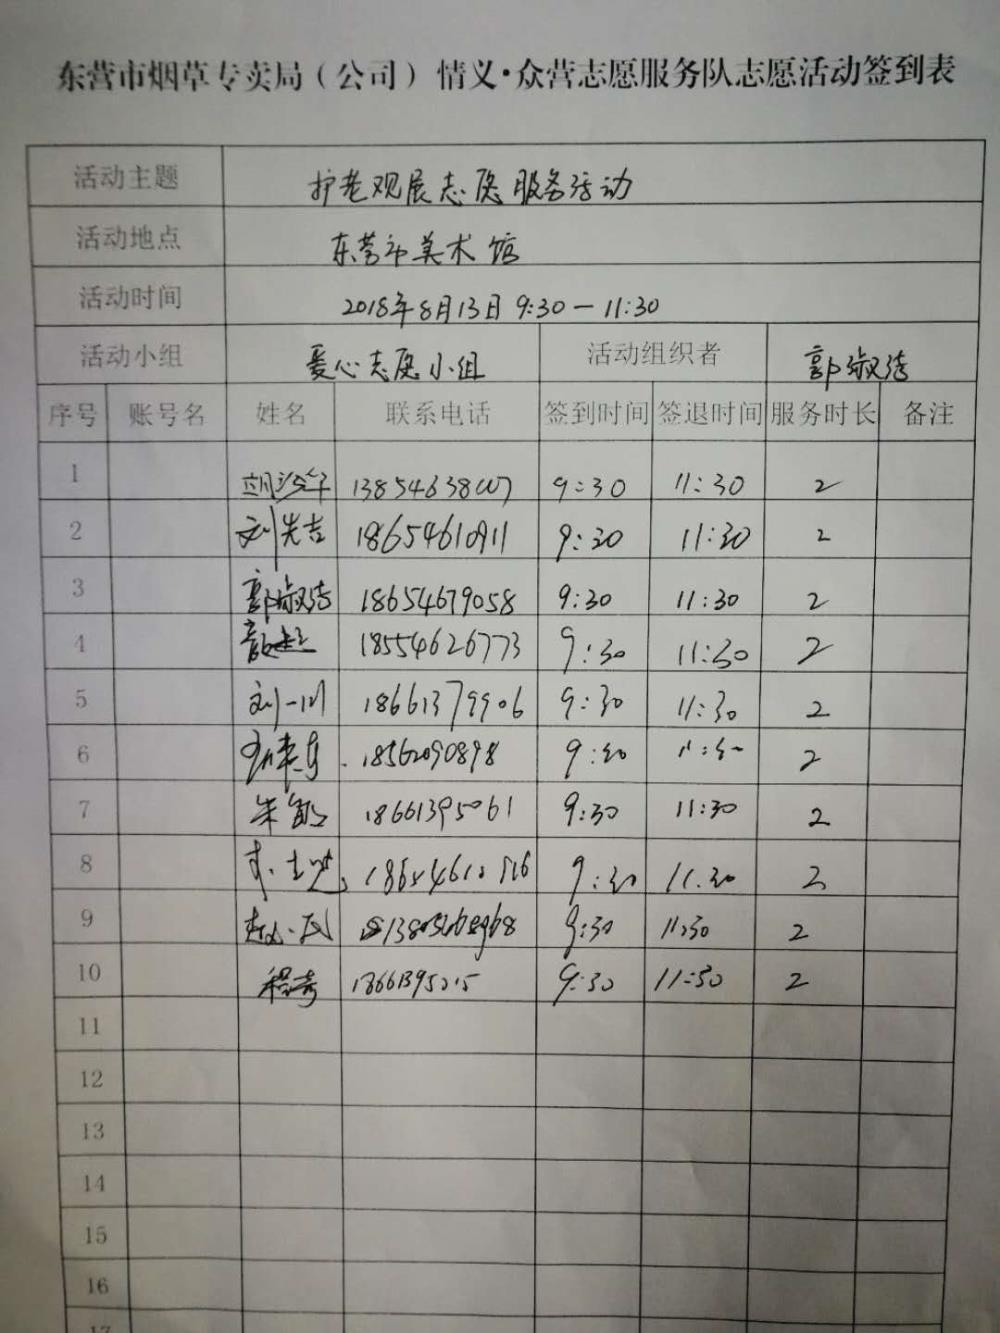 东营市烟草专卖局（公司）情义·众营志愿服务队志愿活动签到表
活动主题 护老观展志愿服务活动
活动地点 东营市美术馆
活动时间 2018年8月13日 9:30－11:30
活动小组 爱心志愿小组 活动组织者 郭淑洁
序号 账号名 姓名 联系电话 签到时间 签退时间 服务时长 备注
1 9:30 11:30 2
2 刘先吉 18654610911 9:30 11:30 2
3 郭淑洁 18654679058 9:30 11:30 2
4 18554626773 9:30 11:30 2
5 刘一川 18661379906 9:30 11:30 2
6 18562090898 9:30 11:30 2
7 朱 18661395061 9:30 11:30 2
8 9:30 11:30 2
9 9:30 11:30 2
10 程奇 9:30 11:30 2
11
12
13
14
15
16
17